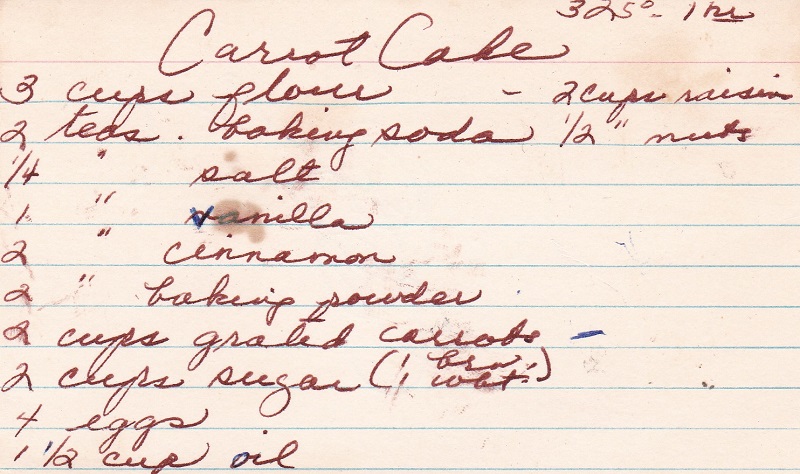 325° - 1 hr
Carrot Cake
3 cups flour - 2 cups raisin
2 teas. baking soda 1/2 " nuts
1/4 " salt
1 " vanilla
2 " cinnamon
2 " baking powder
2 cups grated carrots -
2 cups sugar (1 brn. 1 wht.)
4 eggs
1 1/2 cup oil